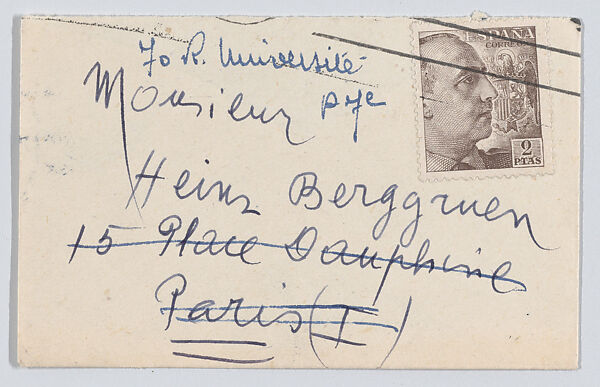 70 R. Université
Monsieur
P7e
ESPAÑA
CORREOS
2
PTAS
Heinz Berggruen
15 Place Dauphine
Paris (I)